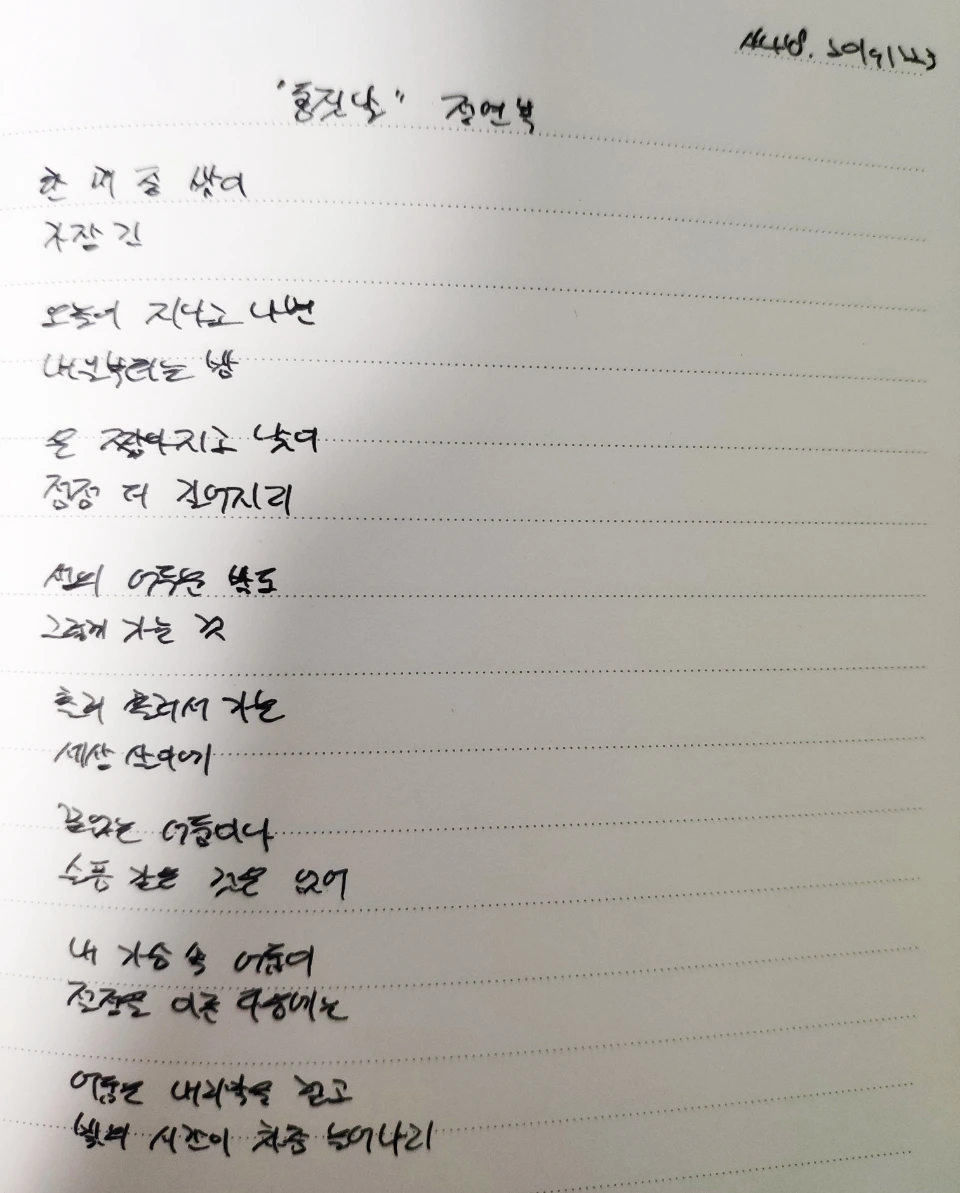 "동짓날" 정연복
한 해 중 밤이
가장 긴
오늘이 지나고 나면
내일부터는 밤
은 짧아지고 낮이
점점 더 길어지리
생의 어두운 밤도
그렇게 가는 것
흘러 흘러서 가는
세상 살이에
끝없는 어둠이나
슬픔 같은 것은 없어
내 가슴 속 어둠이
절정을 이룬 다음에는
어둠은 내리막을 걷고
빛의 시간이 차츰 늘어나리